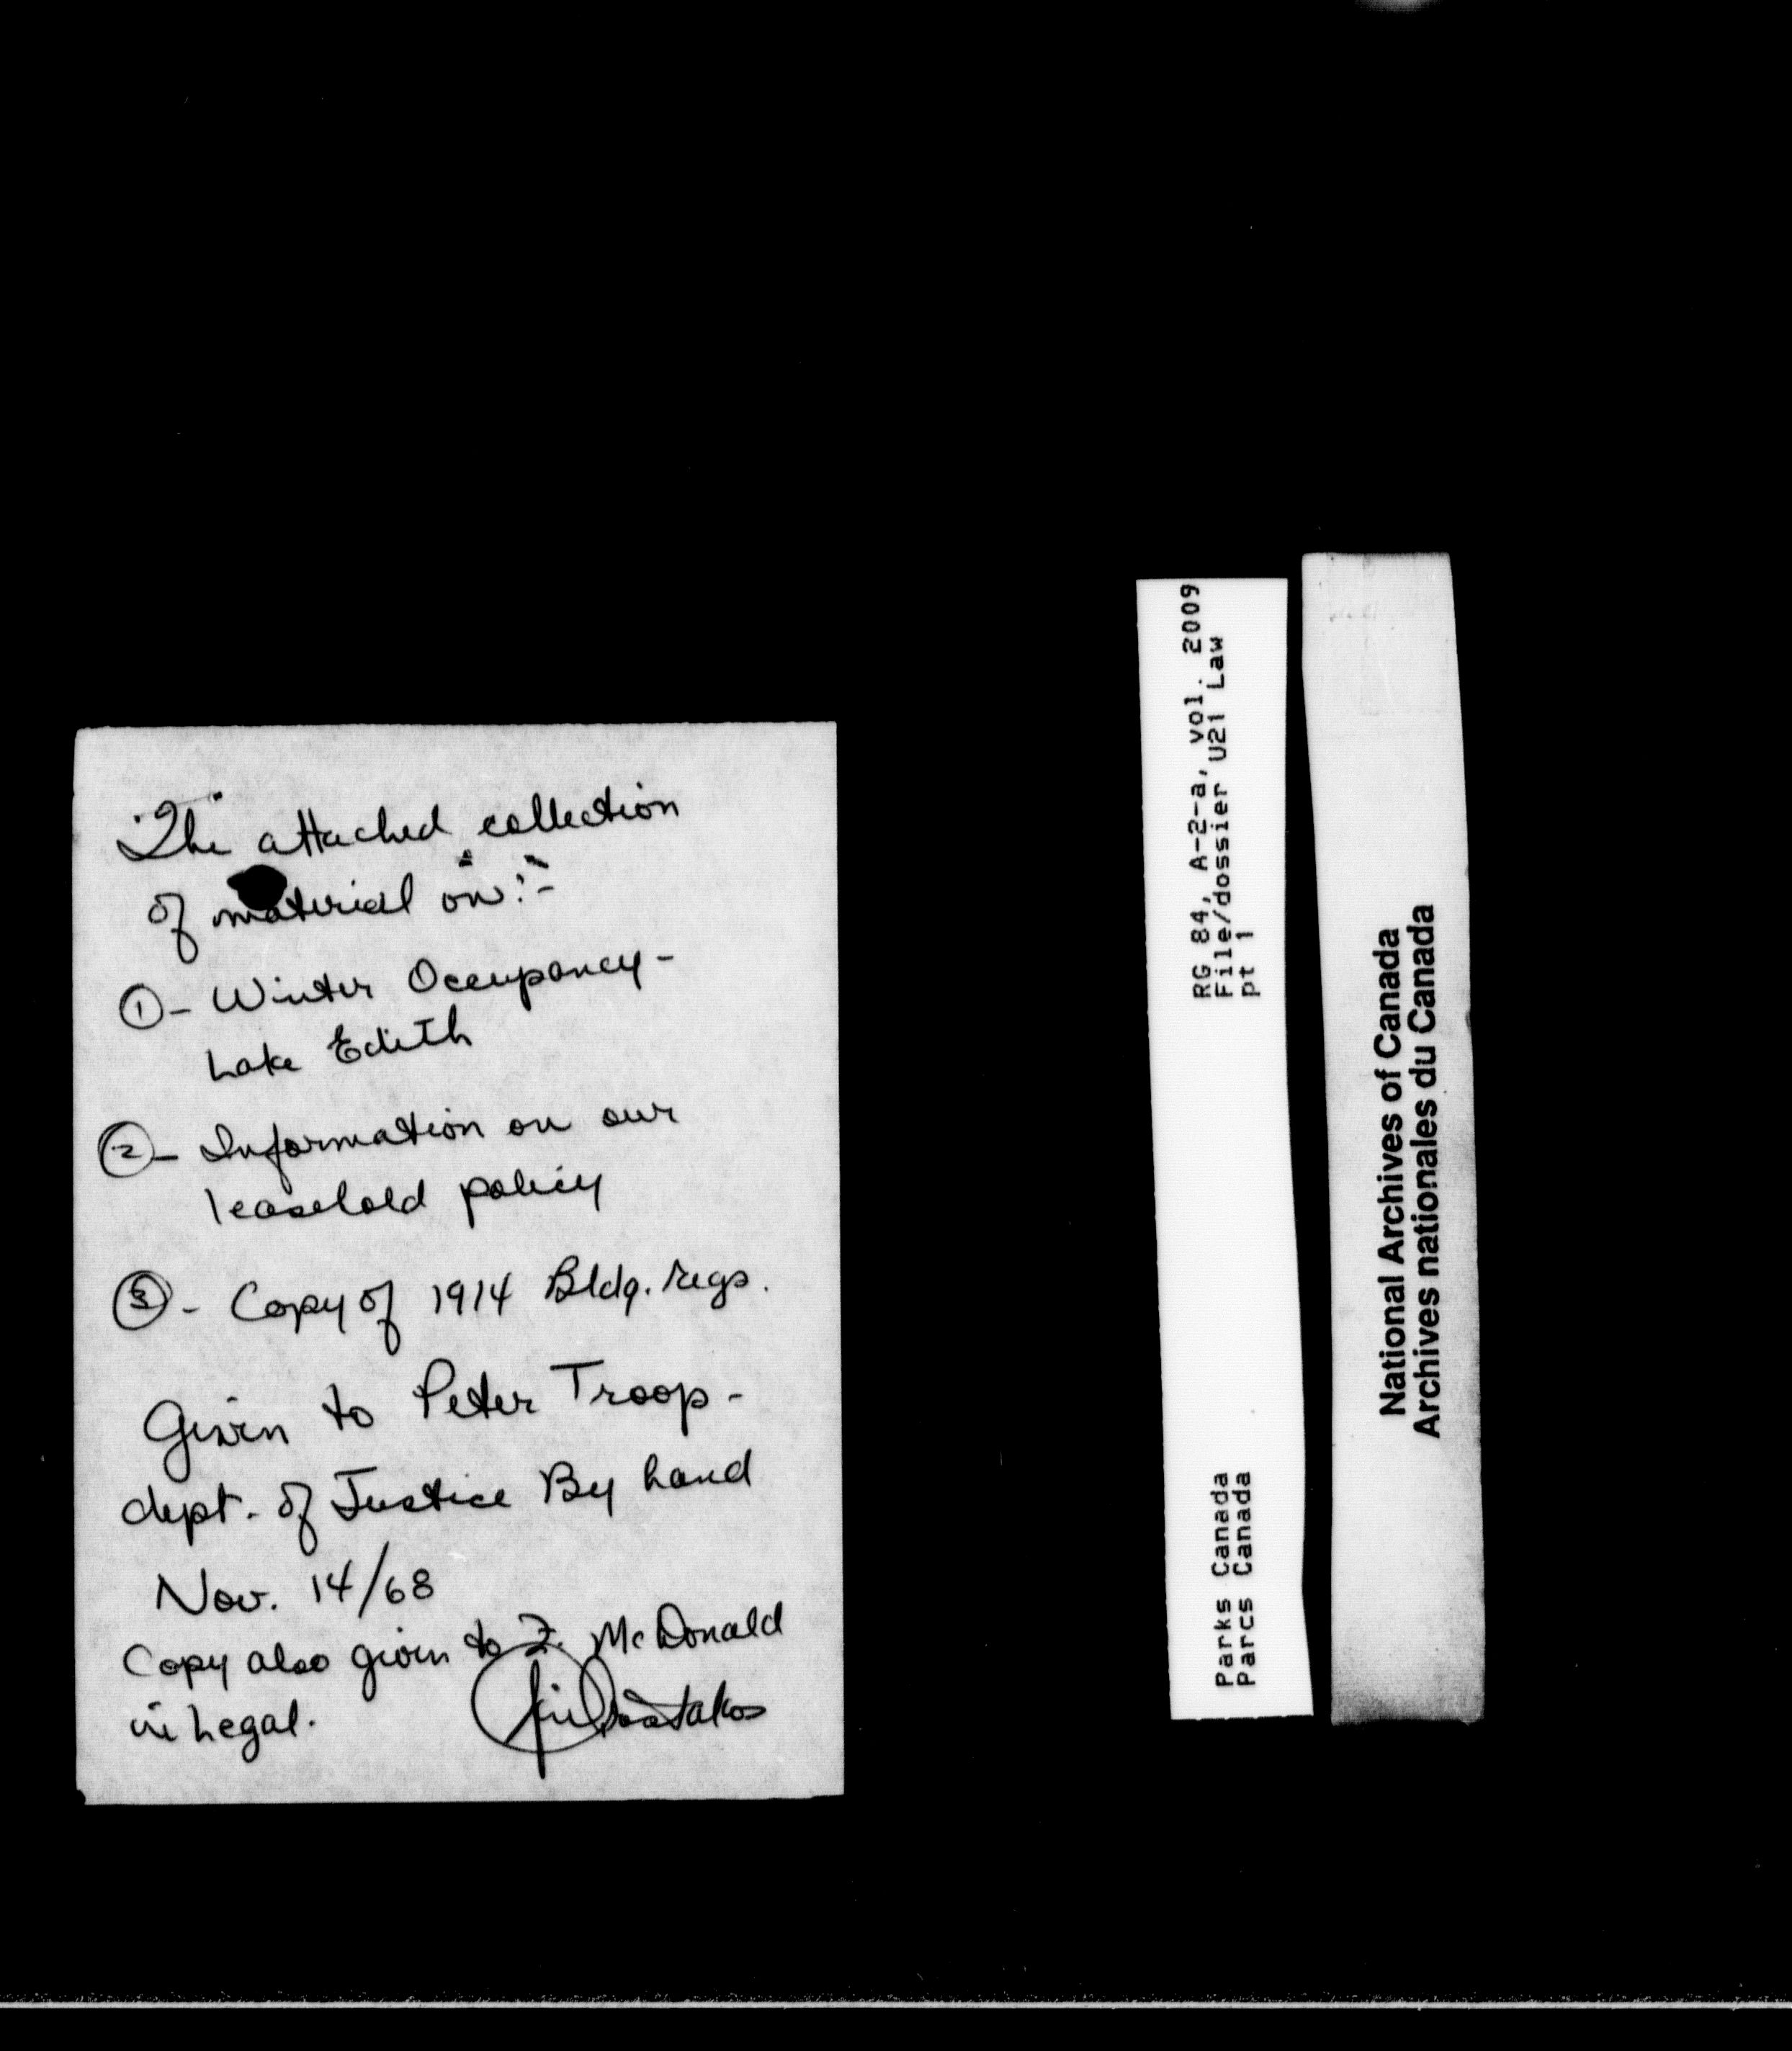 The attached collection
of material on:-
① - Winter Occupancy -
Lake Edith
② - Information on our
leasehold policy
③ - Copy of 1914 Bldg. regs.
Given to Peter Troop -
dept. of Justice By hand
Nov. 14/68
Copy also given to McDonald
in Legal.
RG 84, A-2-a, vol. 2009
File/dossier U21 Law
pt 1
Parks Canada
Parcs Canada
National Archives of Canada
Archives nationales du Canada